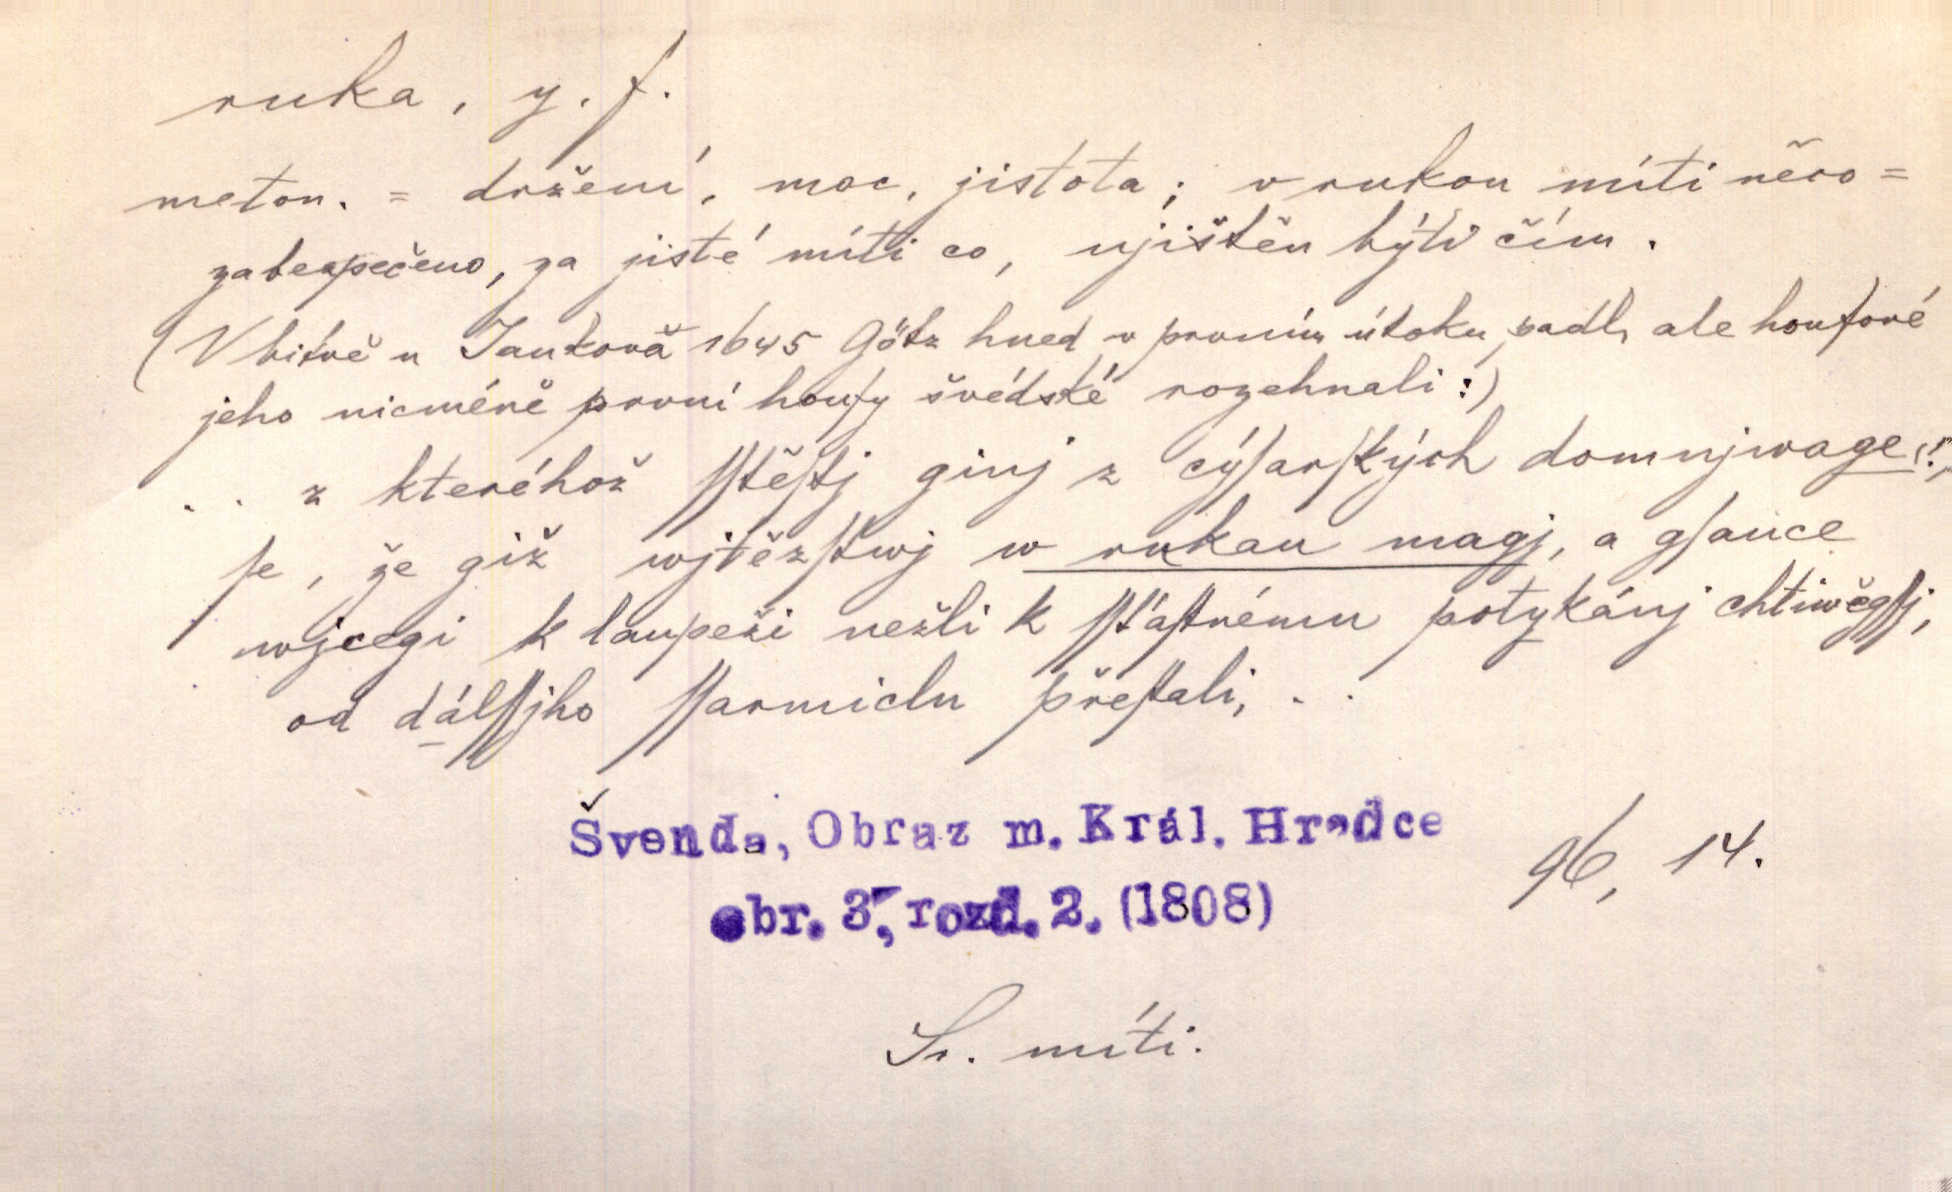 ruka, y. f.
meton. = držení, moc, jistota; v rukou míti něco =
zabezpečeno, za jisté míti co, ujištěn býti čím.
(V bitvě u Jankova 1645 Götz hned v prvním útoku padl, ale houfové
jeho nicméně první houfy švédské rozehnali:)
.. z kteréhož ſſtěſtj ginj z cýſarſkých domnjwage (!)
ſe, že giž wjtězſtwj w rukau magj, a gſauce
wjcegi k laupeži nežli k ſſťaſtnému potykánj chtiwěgſſj,
od dálſſjho ſſarmiclu přeſtali, ..
Švenda, Obraz m. Král. Hradce
obr. 3, rozd. 2. (1808)
96, 14.
Sr. míti.